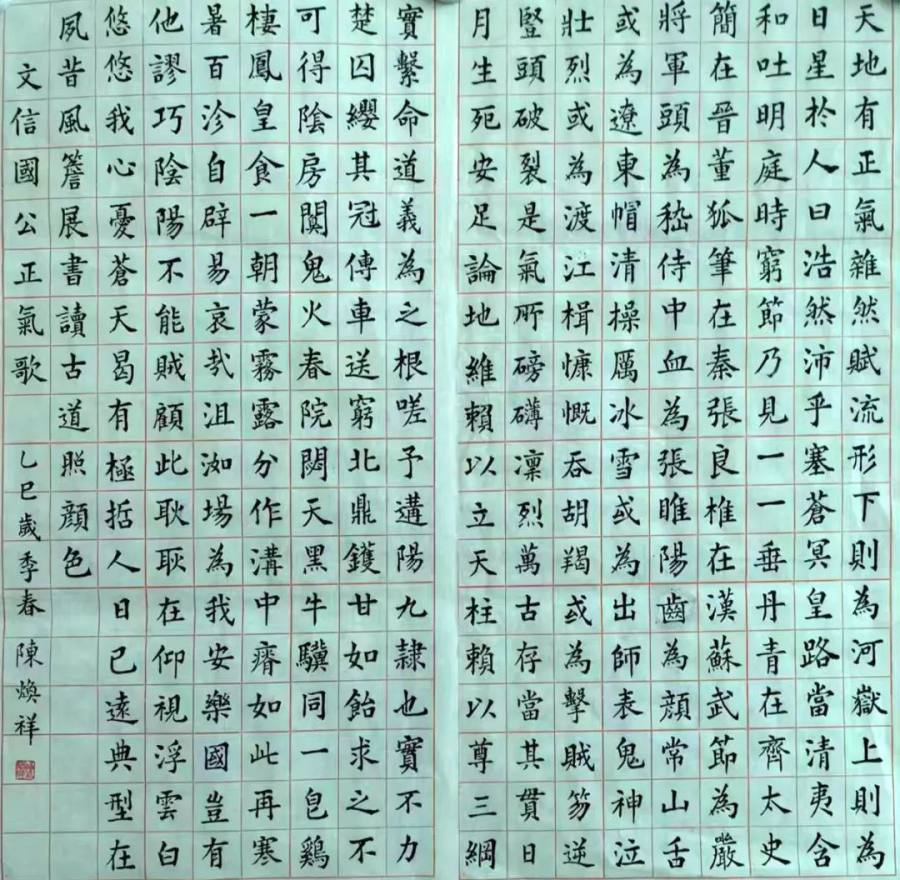 天地有正氣雜然賦流形下則為河嶽上則為
日星於人曰浩然沛乎塞蒼冥皇路當清夷含
和吐明庭時窮節乃見一一垂丹青在齊太史
簡在晉董狐筆在秦張良椎在漢蘇武節為嚴
將軍頭為嵇侍中血為張睢陽齒為顏常山舌
或為遼東帽清操厲冰雪或為出師表鬼神泣
壯烈或為渡江楫慷慨吞胡羯或為擊賊笏逆
豎頭破裂是氣所磅礴凜烈萬古存當其貫日
月生死安足論地維賴以立天柱賴以尊三綱
實繫命道義為之根嗟予遘陽九隸也實不力
楚囚纓其冠傳車送窮北鼎鑊甘如飴求之不
可得陰房闃鬼火春院閟天黑牛驥同一皂鷄
棲鳳皇食一朝蒙霧露分作溝中瘠如此再寒
暑百沴自辟易哀哉沮洳場為我安樂國豈有
他謬巧陰陽不能賊顧此耿耿在仰視浮雲白
悠悠我心憂蒼天曷有極哲人日已遠典型在
夙昔風簷展書讀古道照顏色
文信國公正氣歌 乙巳歲季春 陳煥祥